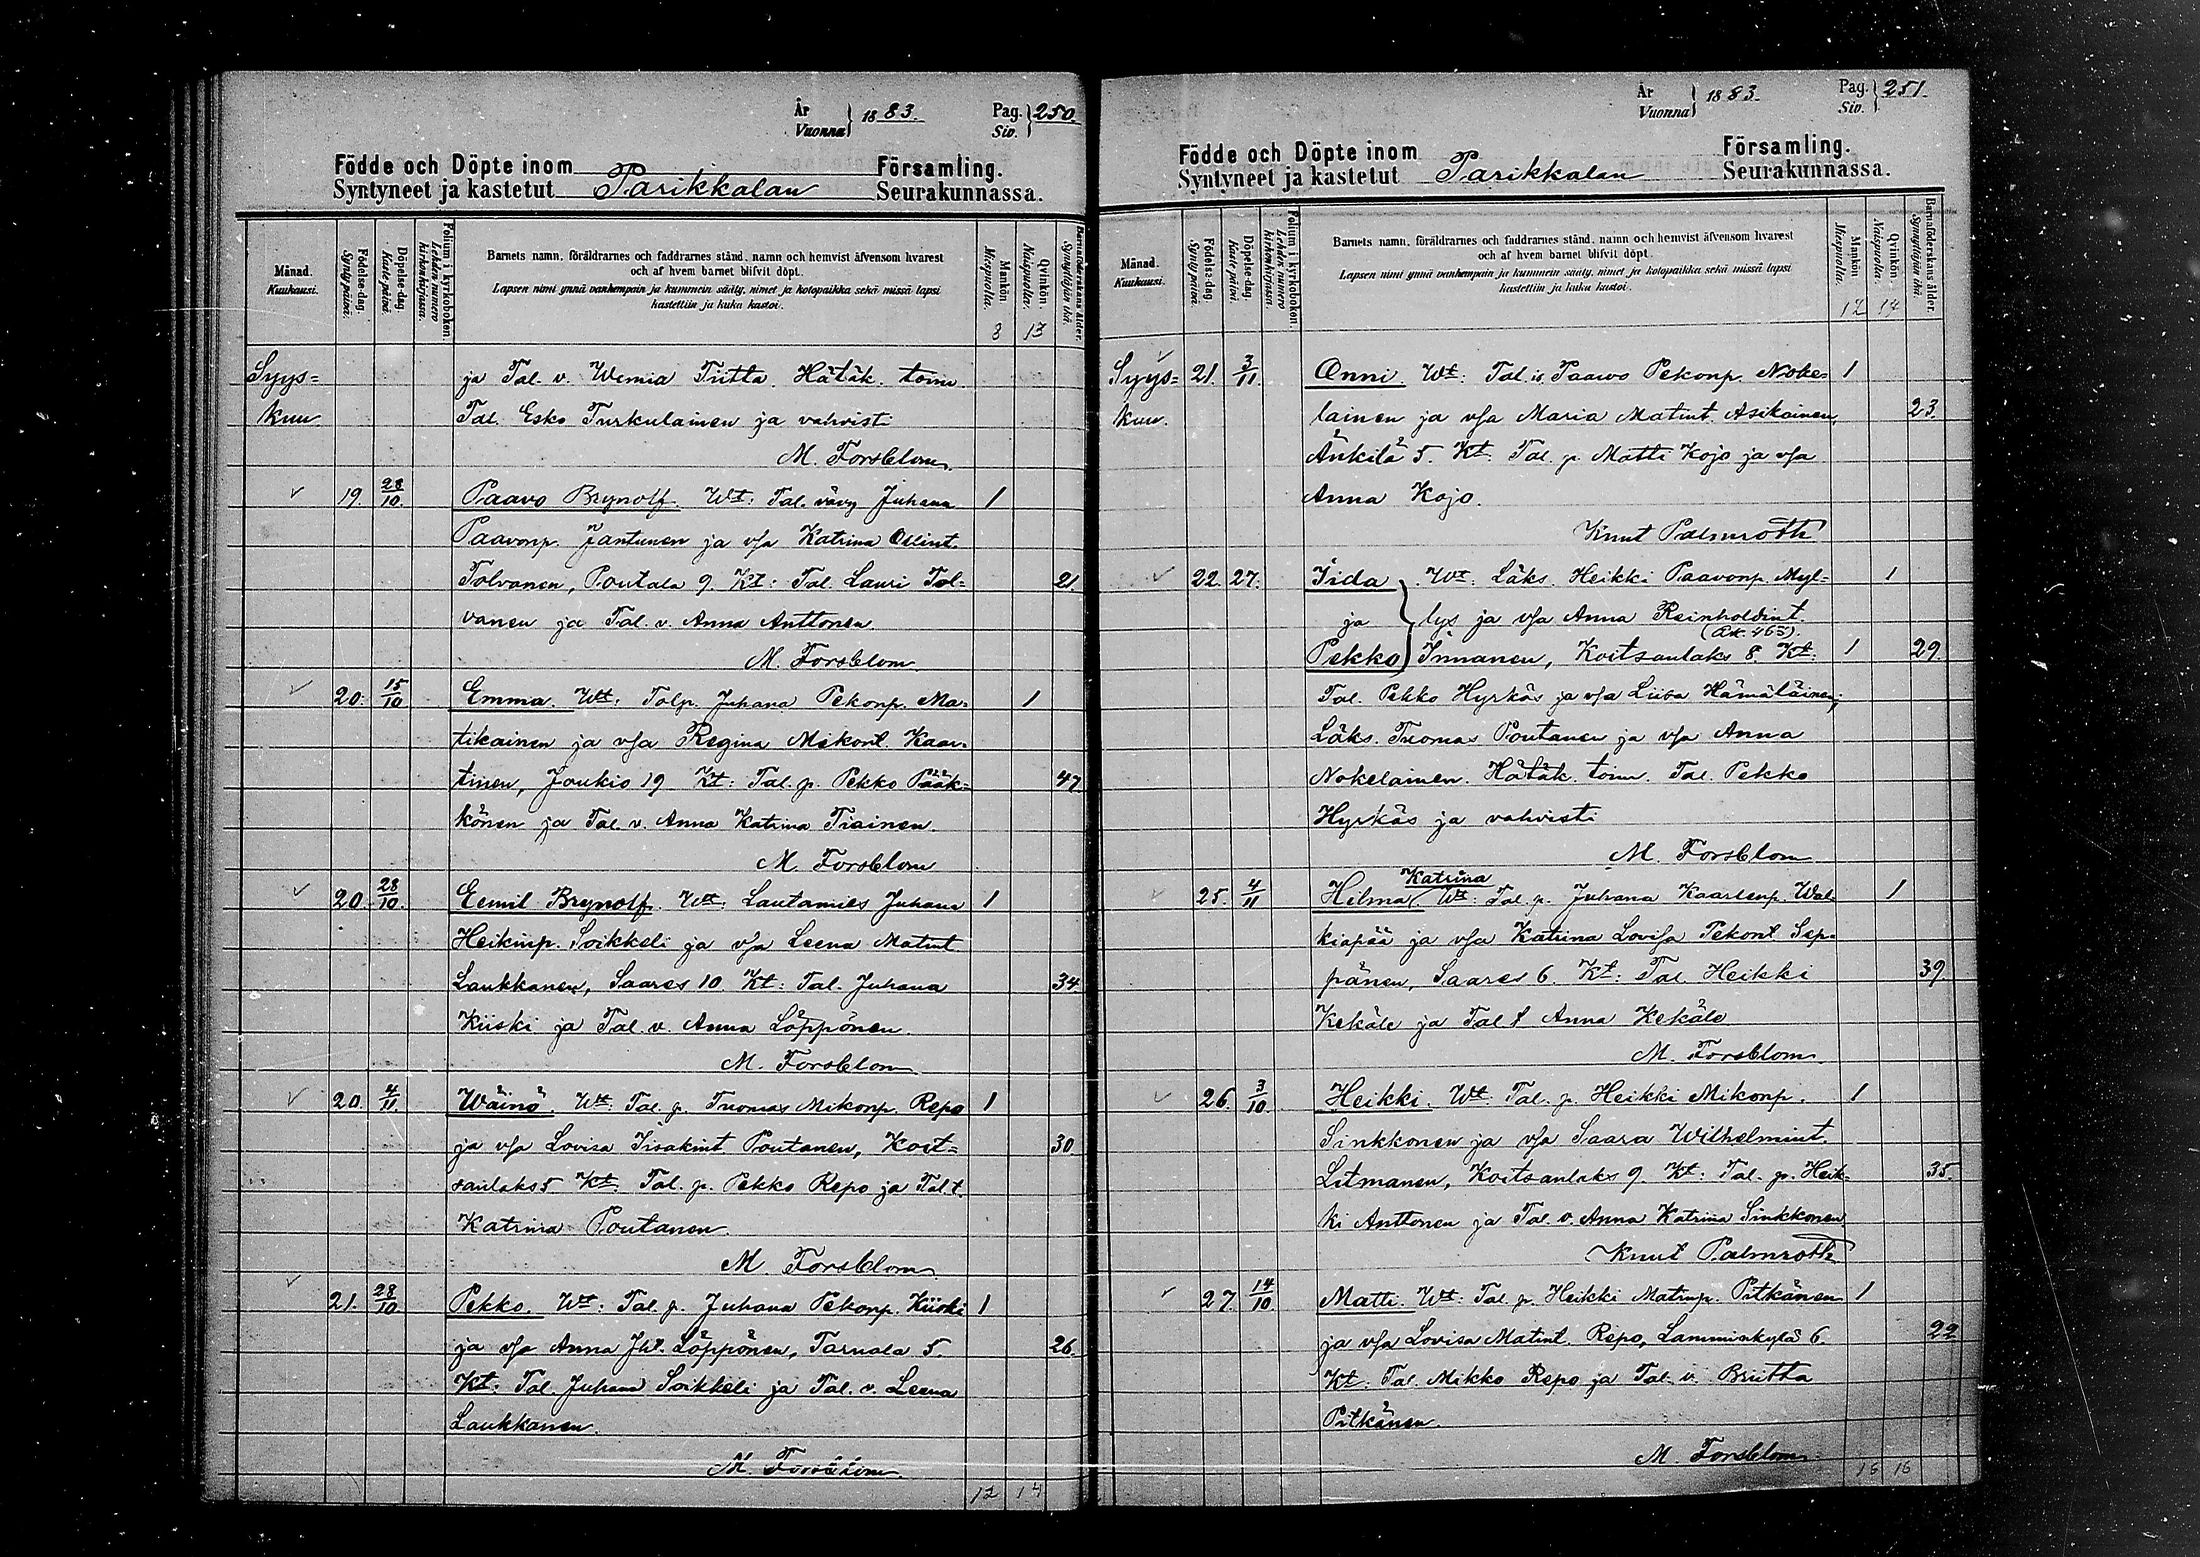 År
Vuonna } 1883.
Pag.
Siv. } 250.
Födde och Döpte inom Församling.
Syntyneet ja kastetut Parikkalan Seurakunnassa.
Månad.
Kuukausi.
Födelse-dag.
Syntymäpäivä.
Döpelse-dag.
Kaste-päivä.
Folium i kyrkoboken.
Lehden numero kirkonkirjassa.
Barnets namn, föräldrarnes och faddrarnes stånd, namn och hemvist äfvensom hvarest
och af hvem barnet blifvit döpt.
Lapsen nimi ynnä vanhempain ja kummein sääty, nimet ja kotopaikka sekä missä lapsi
kastettiin ja kuka kastoi.
Mankön.
Miespuolta.
Qvinkön.
Naispuolta.
Barnaföderskans ålder.
Synnyttäjän ikä.
8 13
Syys= ja Tal. v. Wernia Tiitta. Hätäk. toim
kuu Tal. Esko Turkulainen ja vahvisti
M. Forsblom.
19. 28/10. Paavo Brynolf. Wt: Tal. vävy Juhana 1
Paavonp. Jantunen ja v/a Katrina Ollint.
Tolvanen, Poutala 9. Kt: Tal. Lauri Tol= 21.
vanen ja Tal. v. Anna Anttonen.
M. Forsblom
20. 15/10 Emma. Wt: Talp. Juhana Pekonp. Ma= 1
tikainen ja v/a Regina Mikont. Kaar=
tinen, Joukio 19 Kt: Tal. p. Pekko Pääk= 47
könen ja Tal. v. Anna Katrina Tiainen.
M. Forsblom
20. 28/10. Eemil Brynolf. Wt: Lautamies Juhana 1
Heikinp. Soikkeli ja v/a Leena Matint
Laukkanen, Saares 10. Kt: Tal. Juhana 34.
Kiiski ja Tal. v. Anna Löppönen
M. Forsblom
20. 4/11. Wäinö. Wt: Tal. p. Tuomas Mikonp. Repo 1
ja v/a Lovisa Iisakint Poutanen, Koit= 30
sanlaks 5. Kt: Tal. p. Pekko Repo ja Tal t.
Katrina Poutanen.
M. Forsblom.
21. 28/10 Pekko. Wt: Tal. p. Juhana Pekonp. Kiiski 1
ja v/a Anna Jht. Löppönen, Tarnala 5. 26.
Kt: Tal. Juhana Soikkeli ja Tal. v. Leena
Laukkanen.
M. Forsblom.
12 14
År
Vuonna } 1883.
Pag.
Siv. } 251.
Födde och Döpte inom Församling.
Syntyneet ja kastetut Parikkalan Seurakunnassa.
Månad.
Kuukausi.
Födelse-dag.
Syntymäpäivä.
Döpelse-dag.
Kaste-päivä.
Folium i kyrkoboken.
Lehden numero kirkonkirjassa.
Barnets namn, föräldrarnes och faddrarnes stånd, namn och hemvist äfvensom hvarest
och af hvem barnet blifvit döpt.
Lapsen nimi ynnä vanhempain ja kummein sääty, nimet ja kotopaikka sekä missä lapsi
kastettiin ja kuka kastoi.
Mankön.
Miespuolta.
Qvinkön.
Naispuolta.
Barnaföderskans ålder.
Synnyttäjän ikä.
12 14
Syys= 21. 3/11. Onni. Wt: Tal. is. Paavo Pekonp. Noke= 1
kuu. lainen ja v/a Maria Matint. Asikainen, 23.
Änkilä 5. Kt: Tal. p. Matti Kojo ja v/a
Anna Kojo.
Knut Palmroth
22. 27. Iida Wt: Läks. Heikki Paavonp. Myl= 1
ja lys ja v/a Anna Reinholdint.
Pekko Innanen, Koitsanlaks 8. Kt: 1 29.
Tal. Pekko Hyrkäs ja v/a Liisa Hämäläinen;
Läks. Tuomas Poutanen ja v/a Anna
Nokelainen. Hätäk. toim. Tal. Pekko
Hyrkäs ja vahvisti
M. Forsblom
Katrina
25. 4/11 Hilma Wt: Tal. p. Juhana Kaarlenp. Wal= 1
kiapää ja v/a Katrina Lovisa Pekont. Sep=
pänen, Saares 6. Kt: Tal. Heikki 39
Kekäle ja Tal t Anna Kekäle
M. Forsblom.
26. 3/10. Heikki. Wt: Tal. p. Heikki Mikonp. 1
Sinkkonen ja v/a Saara Wilhelmint.
Litmanen, Koitsanlaks 9. Kt: Tal. p. Heik= 35.
ki Anttonen ja Tal. v. Anna Katrina Sinkkonen
Knut Palmroth
27. 14/10 Matti. Wt: Tal. p. Heikki Matinp. Pitkänen 1
ja v/a Lovisa Matint. Repo, Lamminkylä 6. 22
Kt: Tal. Mikko Repo ja Tal. v. Briitta
Pitkänen.
M. Forsblom.
16 16